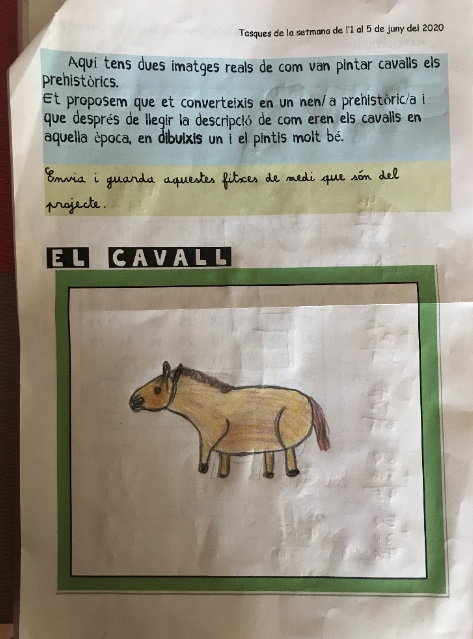 Tasques de la setmana de l'1 al 5 de juny del 2020
Aquí tens dues imatges reals de com van pintar cavalls els
prehistòrics.
Et proposem que et converteixis en un nen/a prehistòric/a i
que després de llegir la descripció de com eren els cavalls en
aquella època, en dibuixis un i el pintis molt bé.
Envia i guarda aquestes fitxes de medi que són del
projecte.
EL CAVALL